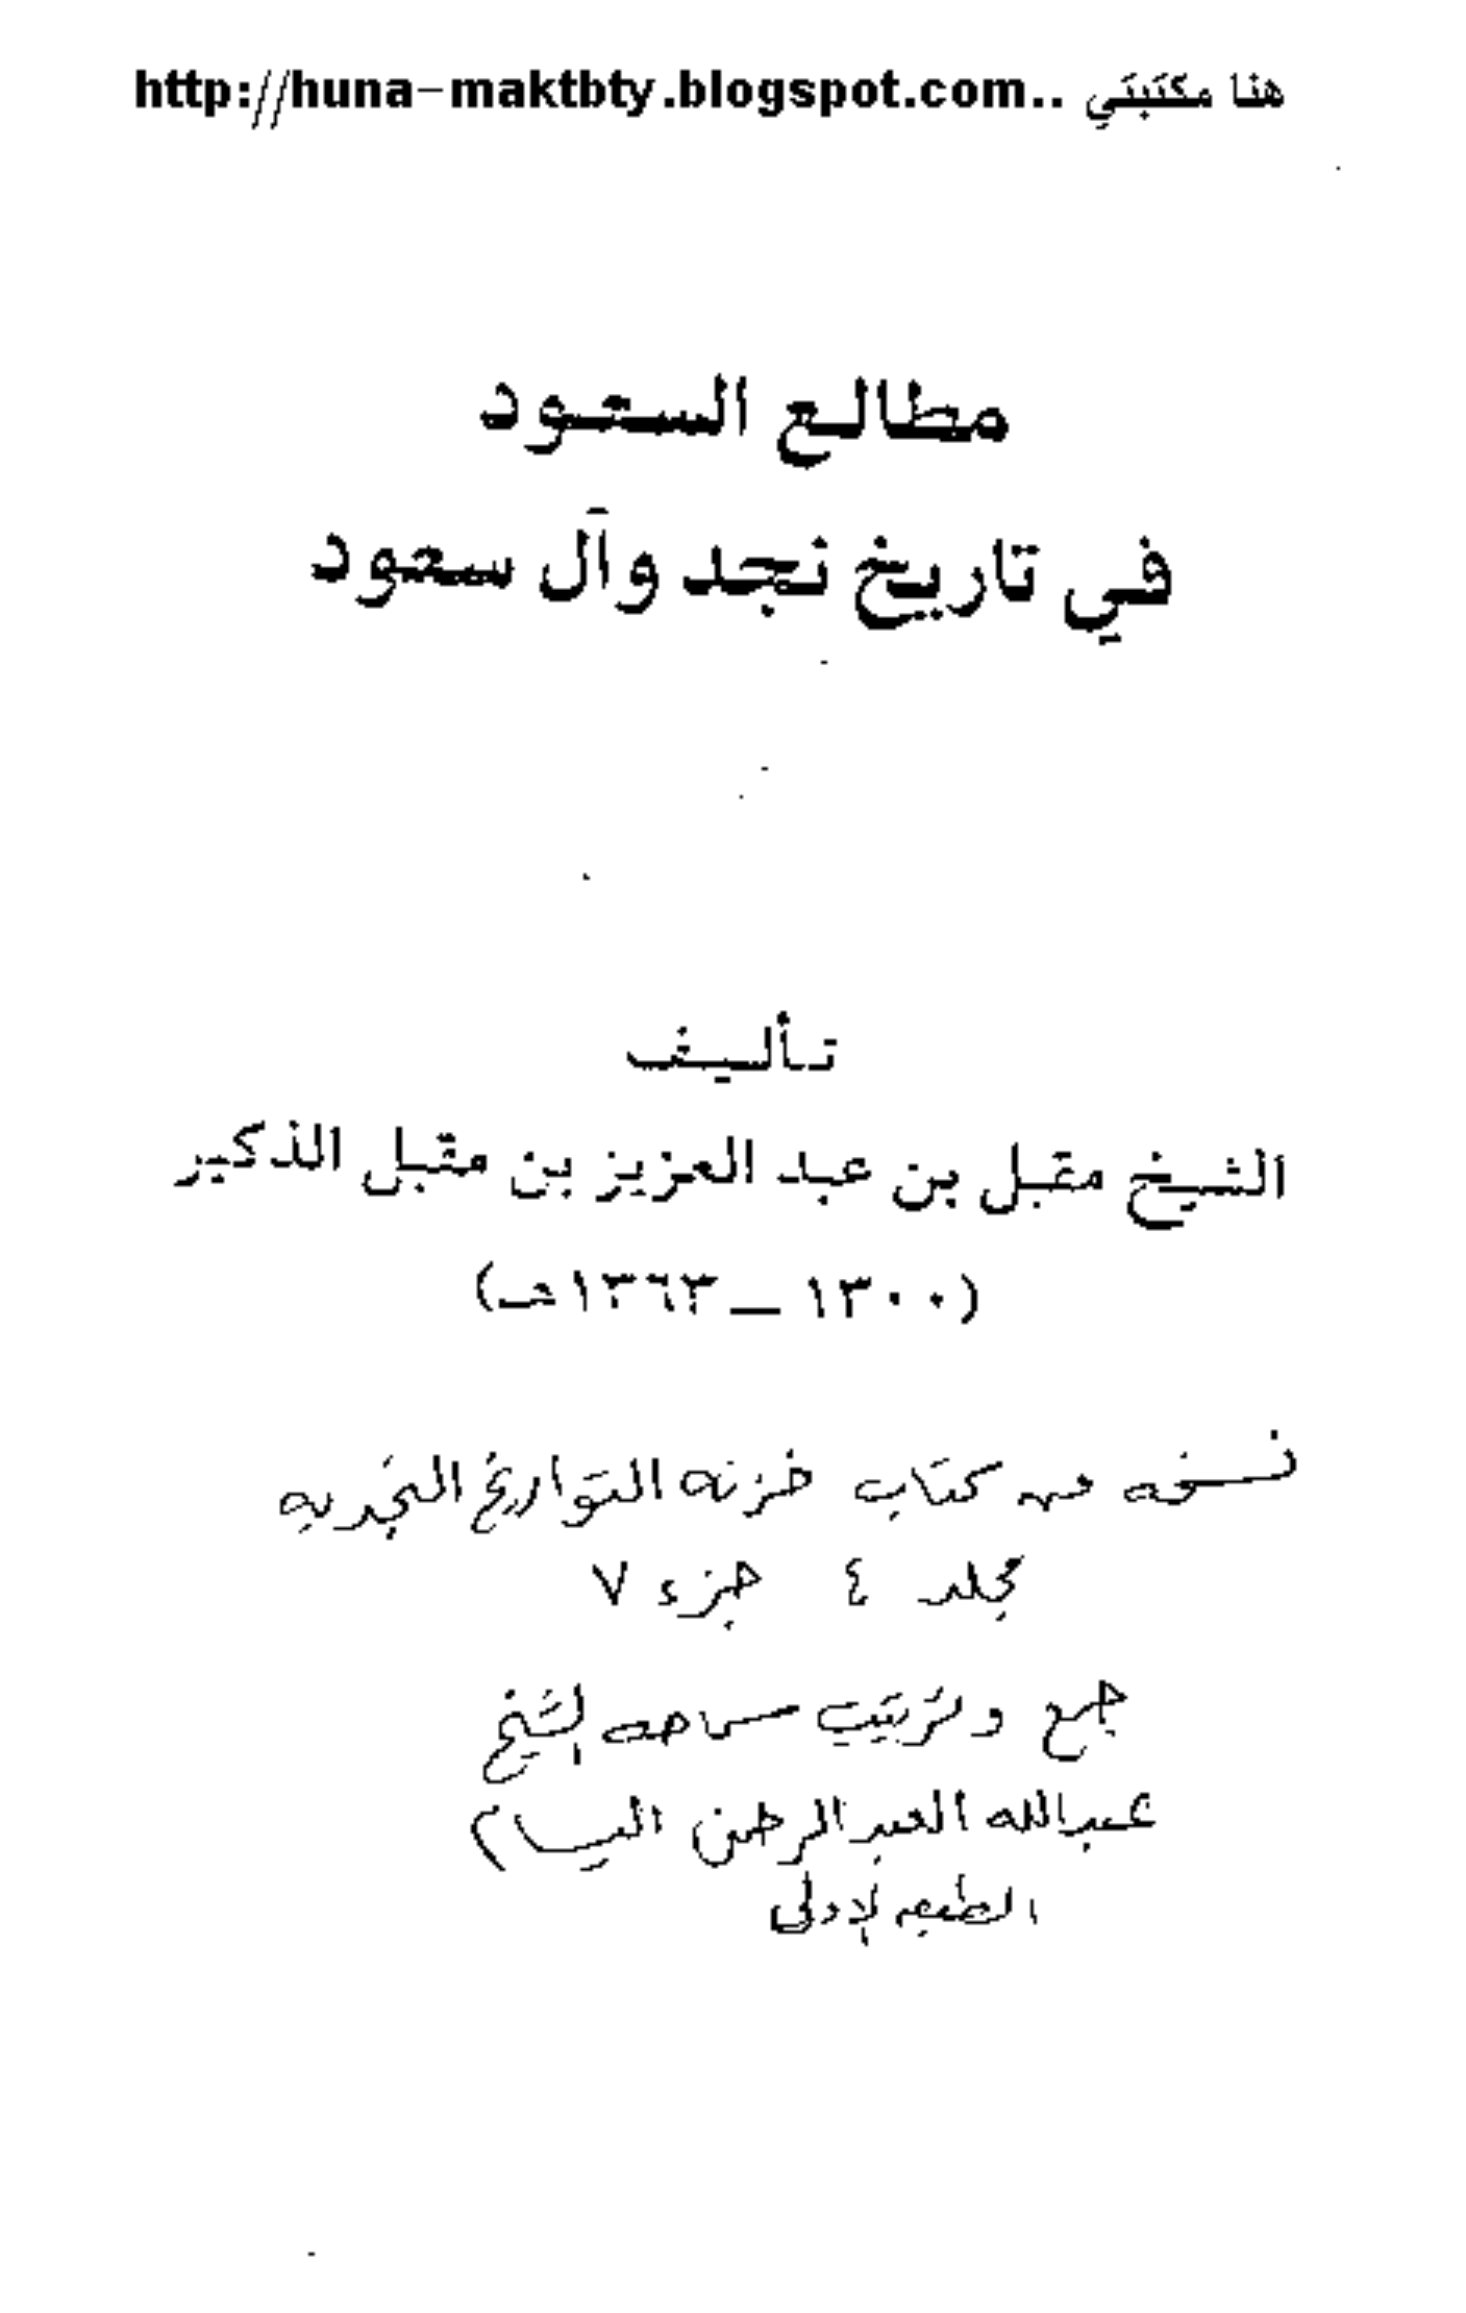 هنا مكتبتي ..http://huna-maktbty.blogspot.com
مطالع السعود
في تاريخ نجد وآل سعود
تأليف
الشيخ مقبل بن عبد العزيز بن مقبل الذكير
(١٣٠٠ – ١٣٦٣هـ)
نسخه من كتاب خزنه التواريخ النجديه
مجلد ٤ جزء ٧
جمع وترتيب سماحه الشيخ
عبدالله العبدالرحمن البسام
الطبعه الاولى